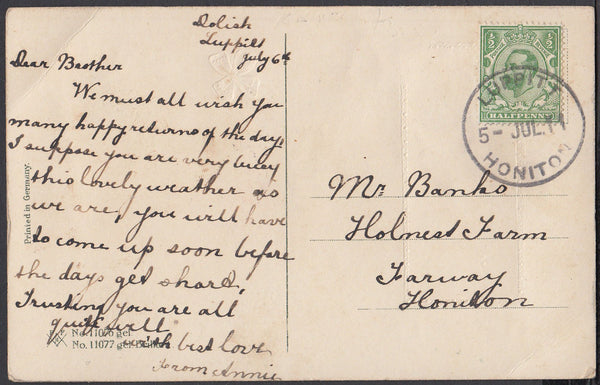 Dolish
Luppitt
July 6th
Dear Brother
We must all wish you
many happy returns of the day,
I suppose you are very busy
this lovely weather as
we are, you will have
to come up soon before
the days get short,
Trusting you are all
quite well
with best love
From Annie
Printed in Germany.
No. 11076 gel.
No. 11077 gel.
½ ½
HALFPENNY
LUPPITT
5 - JUL.11
HONITON
Mr. Banks
Holnest Farm
Farway
Honiton